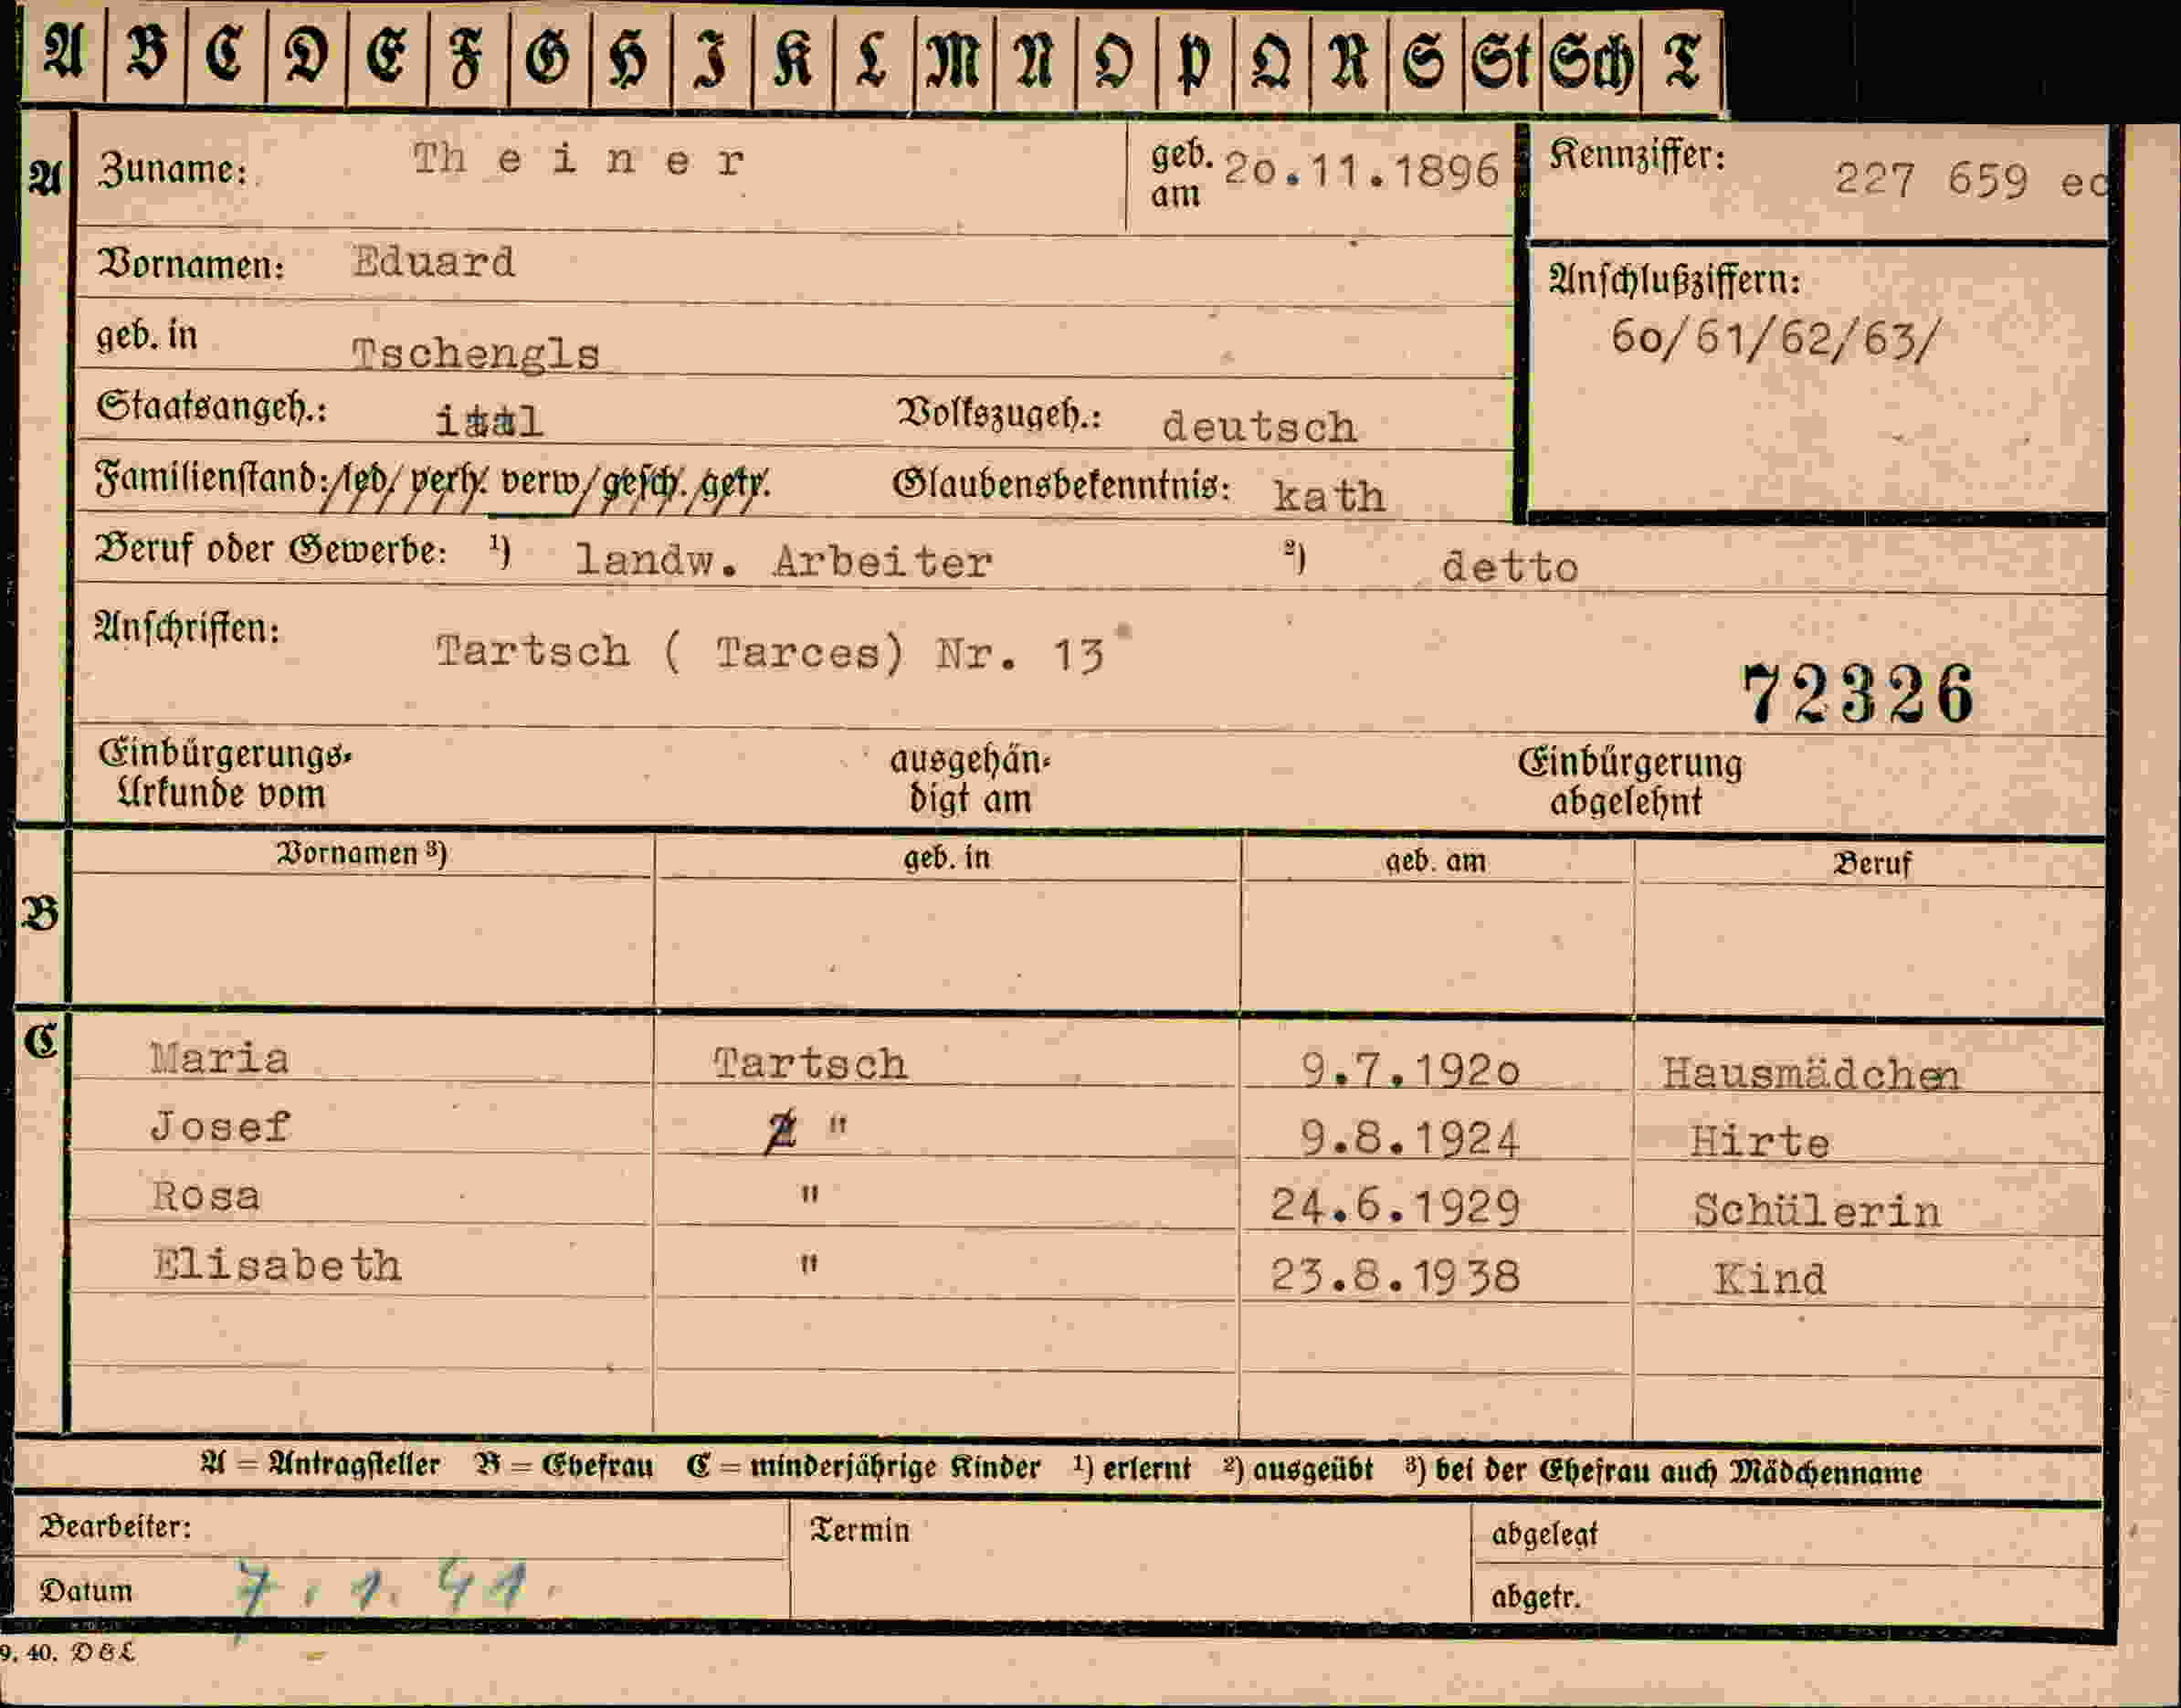 A B C D E F G H I K L M N O P Q R S St Sch T
A Zuname: Theiner geb. am 20.11.1896 Kennziffer: 227 659 ec
Vornamen: Eduard
Anschlußziffern:
geb. in Tschengls 60/61/62/63/
Staatsangeh.: ital Volkszugeh.: deutsch
Familienstand: led/ verh. verw/gesch./getr. Glaubensbekenntnis: kath
Beruf oder Gewerbe: ¹) landw. Arbeiter ²) detto
Anschriften: Tartsch ( Tarces) Nr. 13
72326
Einbürgerungs- ausgehän- Einbürgerung
Urkunde vom digt am abgelehnt
Vornamen ³) geb. in geb. am Beruf
B
C
Maria Tartsch 9.7.1920 Hausmädchen
Josef " 9.8.1924 Hirte
Rosa " 24.6.1929 Schülerin
Elisabeth " 23.8.1938 Kind
A = Antragsteller B = Ehefrau C = minderjährige Kinder ¹) erlernt ²) ausgeübt ³) bei der Ehefrau auch Mädchenname
Bearbeiter: Termin abgelegt
Datum 7.1.41. abgetr.
9. 40. D&L